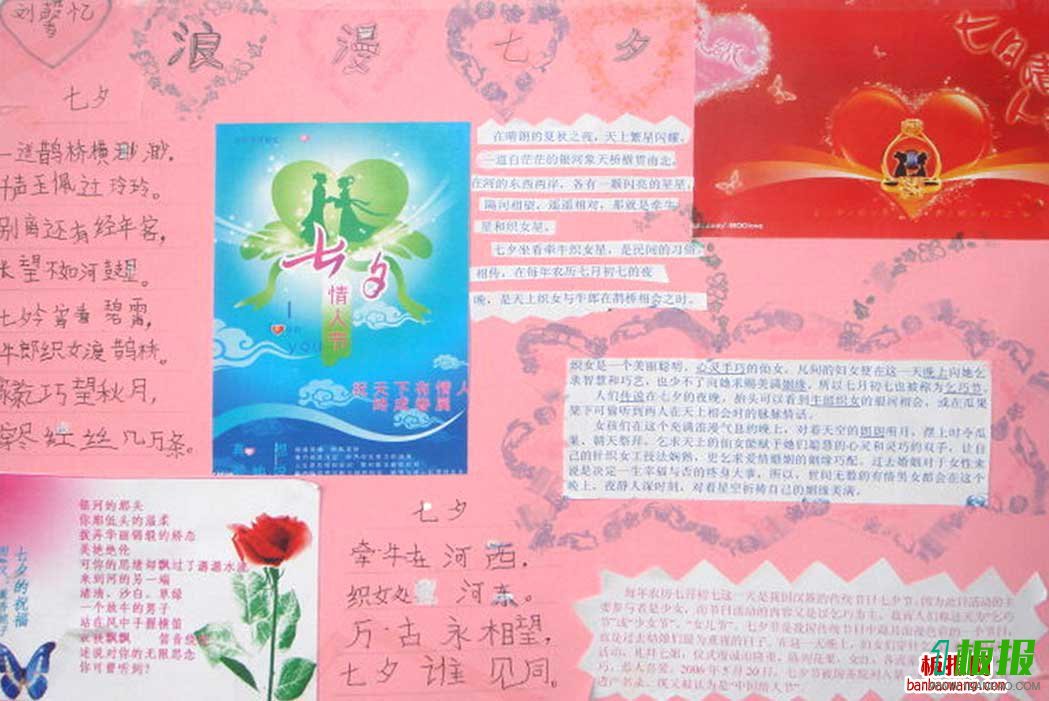 刘馨忆
浪漫七夕
七夕
一道鹊桥横渺渺,
声玉佩过玲玲。
别离还有经年客,
长望不如河鼓星。
七夕今宵看碧霄,
牛郎织女渡鹊桥。
家乞巧望秋月,
穿尽红丝几万条。
七夕
情人节
I
you
愿天下有情人
在晴朗的夏秋之夜，天上繁星闪耀，
一道白茫茫的银河象天桥横贯南北，
在河的东西两岸，各有一颗闪亮的星星，
隔河相望，遥遥相对，那就是牵牛
星和织女星。
七夕坐看牵牛织女星，是民间的习俗
相传，在每年农历七月初七的夜
晚，是天上织女与牛郎在鹊桥相会之时。
七夕情人
织女是一个美丽聪明、心灵手巧的仙女，凡间的妇女便在这一天晚上向她乞
求智慧和巧艺，也少不了向她求赐美满姻缘，所以七月初七也被称为乞巧节。
人们传说在七夕的夜晚，抬头可以看到牛郎织女的银河相会，或在瓜果
架下可偷听到两人在天上相会时的脉脉情话。
女孩们在这个充满浪漫气息的晚上，对着天空的朗朗明月，摆上时令瓜
果，朝天祭拜，乞求天上的仙女能赋予她们聪慧的心灵和灵巧的双手，让自
己的针织女工技法娴熟，更乞求爱情婚姻的姻缘巧配。过去婚姻对于女性来
说是决定一生幸福与否的终身大事，所以，世间无数的有情男女都会在这个
晚上，夜静人深时刻，对着星空祈祷自己的姻缘美满。
七夕的祝福
银河的那头
你那低头的温柔
拨弄华丽锦缎的娇态
美艳绝伦
可你的思绪却飘过了潺潺水流
来到河的另一端
渚清，沙白，草绿
一个放牛的男子
站在风中手握横笛
衣袂飘飘 笛音悠悠
述说对你的无限思念
你可曾听到？
七夕
牵牛在河西,
织女处河东。
万古永相望,
七夕谁见同。
每年农历七月初七这一天是我国汉族的传统节日七夕节。因为此日活动的主
要参与者是少女，而节日活动的内容又是以乞巧为主，故而人们称这天为“乞巧
节”或“少女节”、“女儿节”。七夕节是我国传统节日中最具浪漫色彩的一个节日，
也是过去姑娘们最为重视的日子。在这一天晚上，妇女们穿针乞巧，
2006年5月20日，七夕节被国务院列入
遗产名录。现又被认为是“中国情人节”。
板报网
banbaowang.com
板报